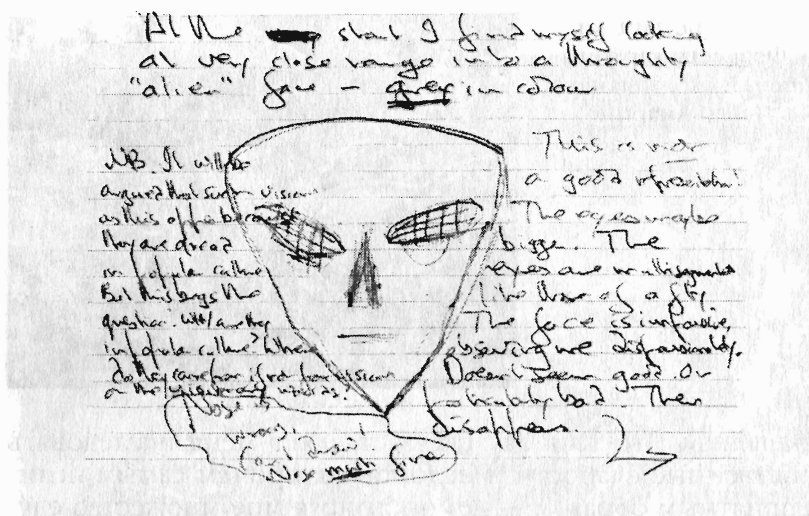 At the start I find myself looking
at very close range into a throughly
"alien" face – grey in colour
NB. It will be
argued that such visions
as this appear because
they are already
in popular culture
But this begs the
question. Why are they
in popular culture? Where
do they come from if not from visions
Nose is
wrong.
Can't draw!
Nose much finer
This is not
a good representation!
The eyes maybe
bigger. The
eyes are multisegmented
like those of a fly
The face is impassive,
observing me dispassionately.
Doesn't seem good or
bad. Then
disappears.